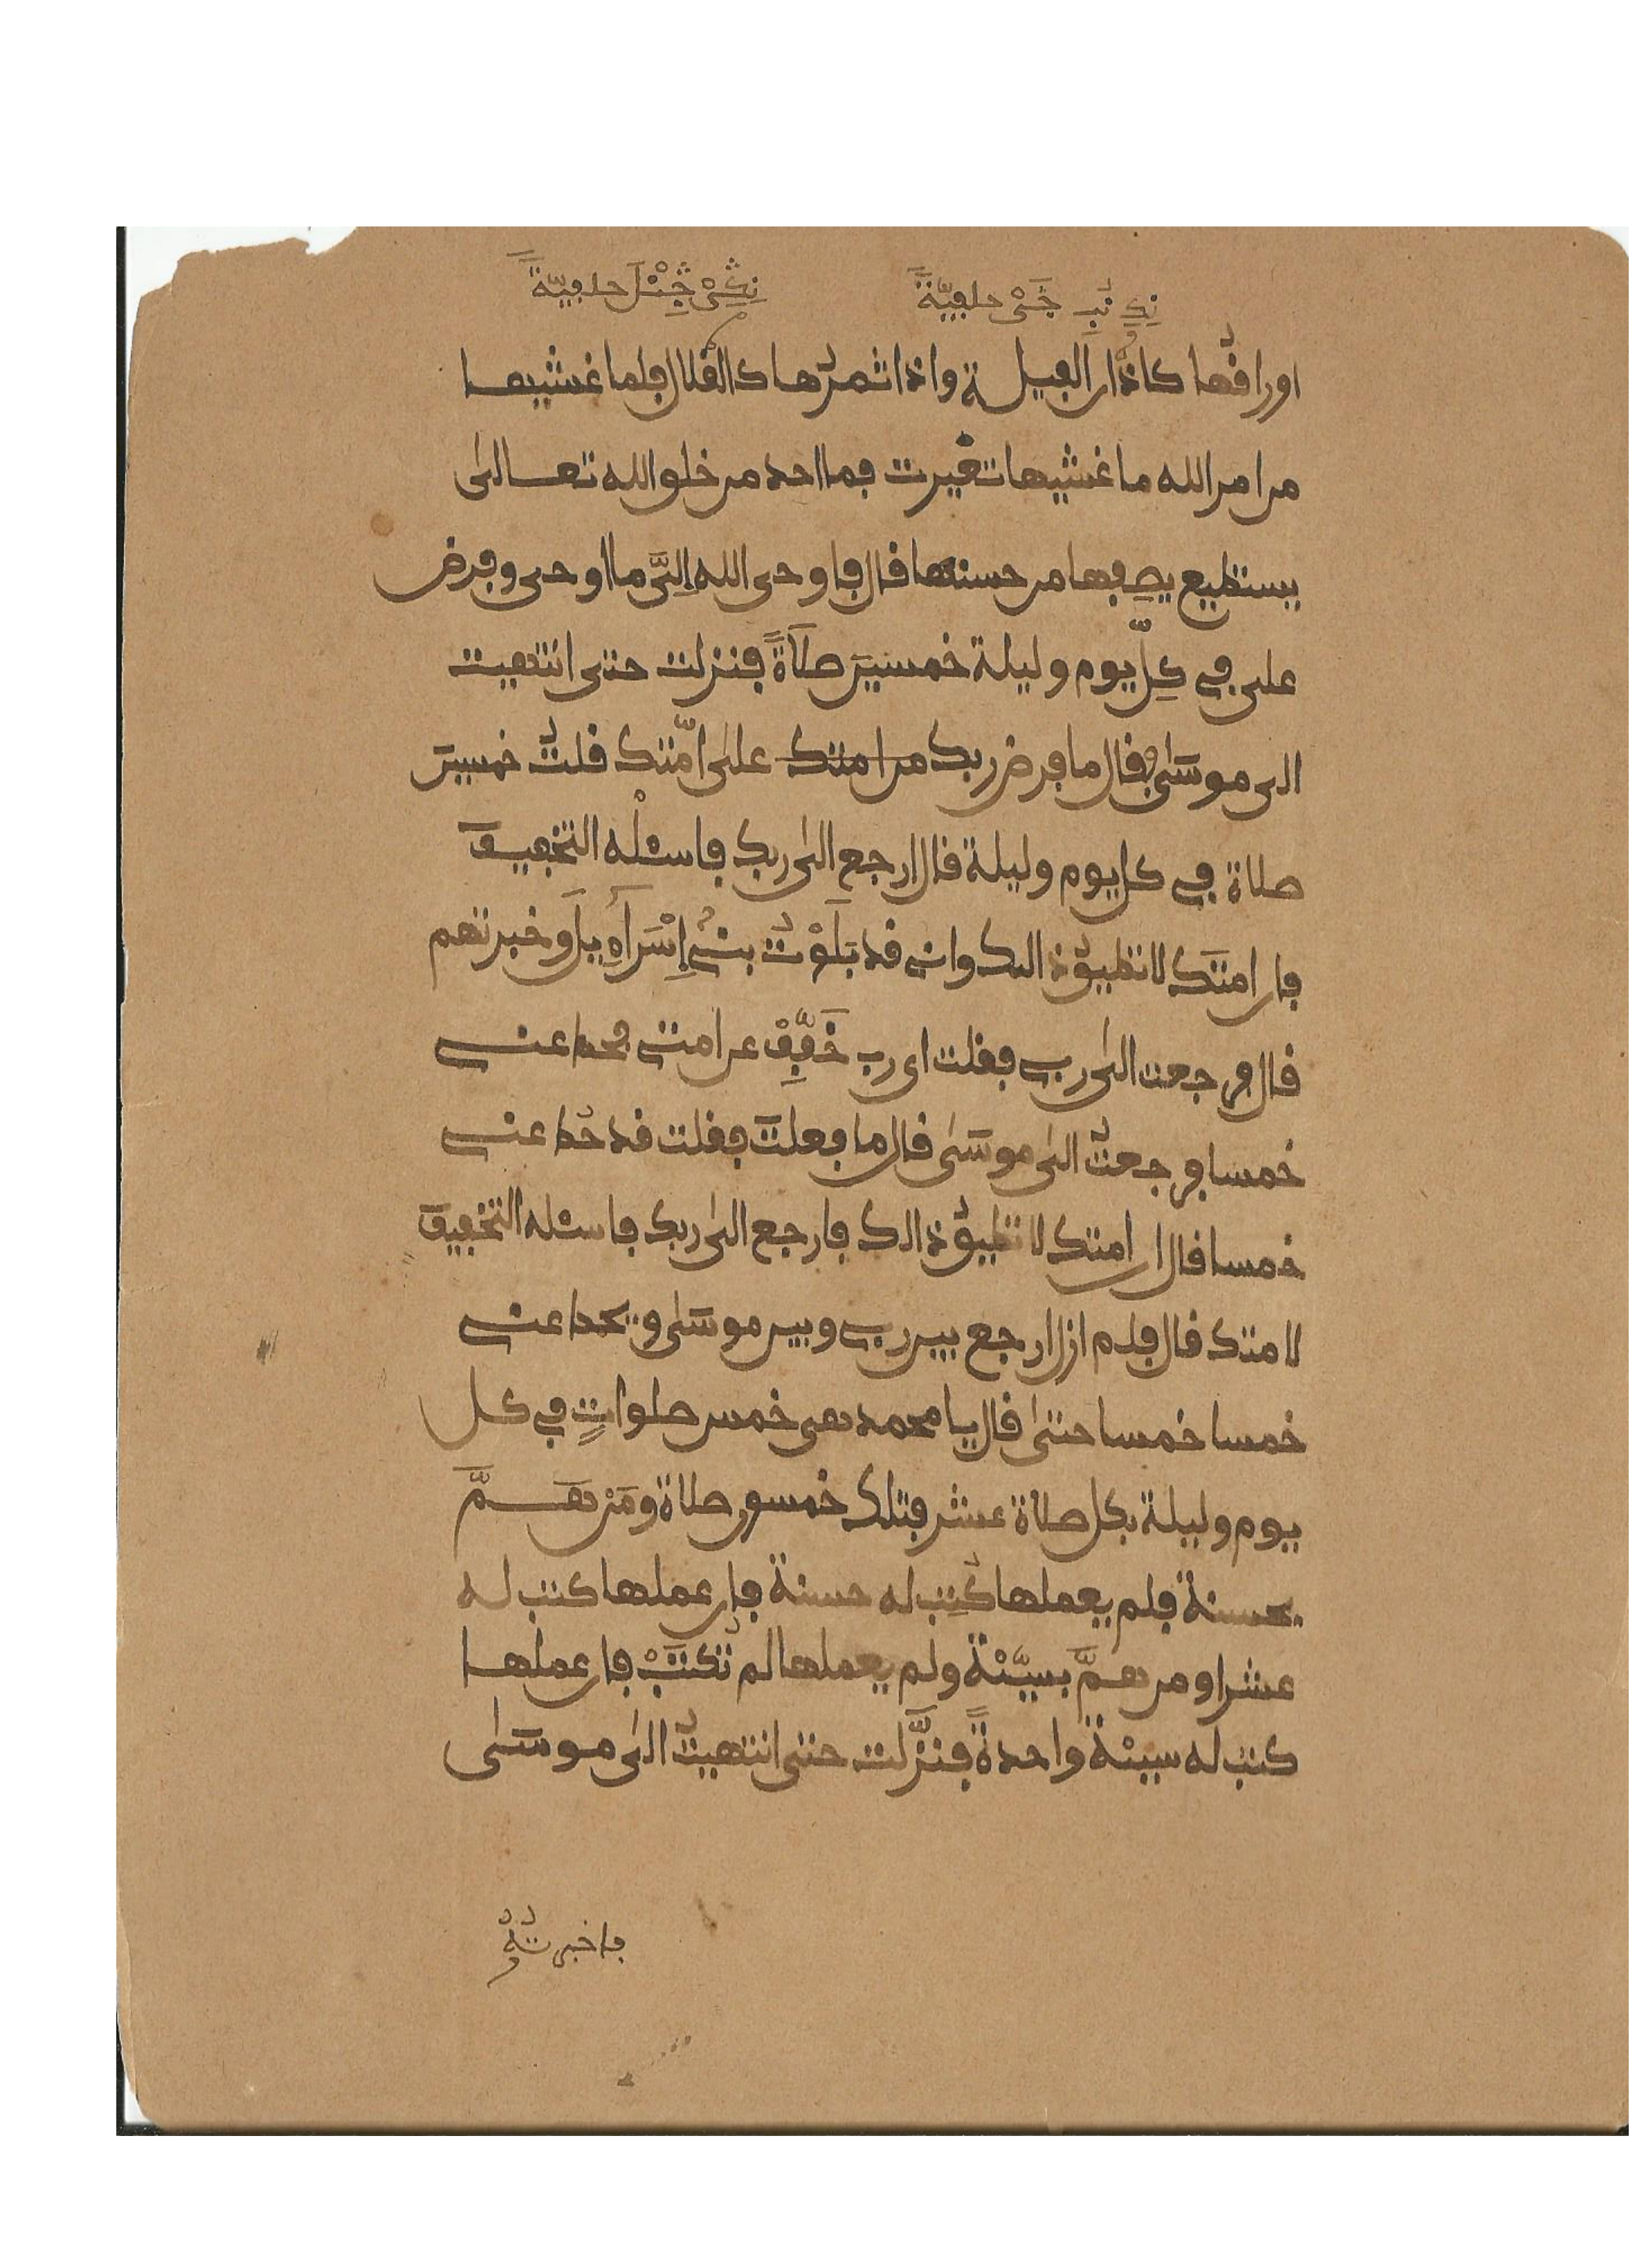 حلفيّةً حلفيّةً
اوراقُها كاذان الفيلة واذا ثمرُها كالقلال فلما غشيها
من امر الله ما غشيها تغيرت فما احد من خلق الله تعالى
يستطيع يصِفها من حسنها قال فاوحى الله إلىَّ ما اوحى وفرض
على في كلِّ يوم وليلة خمسينَ صلاةً فنزلت حتى انتهيت
الى موسَى فقال ما فرض ربك من امتك على امّتك قلتُ خمسينَ
صلاة في كل يوم وليلة قال ارجع الى ربك فاسئلْه التخفيفَ
فان امتَك لا تطيقُ ذالك وانى قد بَلَوْتُ بنىْ إِسْرَآءِيلَ وخبرتهم
قال فرجعت الى ربى فقلت اى رب خَفِّفْ عن امتى فحط عنى
خمسا فرجعتُ الى موسَى قال ما فعلتَ فقلت قد حُط عنى
خمسا قال ان امتك لا تطيقُ ذالك فارجع الى ربك فاسئله التخفيفَ
لامتك قال فلم ازل ارجع بين ربى وبين موسَى ويحط عنى
خمسا خمسا حتى قال يا محمد هى خمس صلواتٍ في كل
يوم وليلة بكل صلاة عشر فتلك خمسون صلاة ومَنْ هَمَّ
بحسنة فلم يعملها كُتِب له حسنة فإن عملها كتب له
عشرا ومن همَّ بسيّئة ولم يعملها لم تُكتَبْ فان عملها
كتب له سيئة واحدةً فنزَّلت حتى انتهيتُ الى موسَى
فاخبرتُهُ